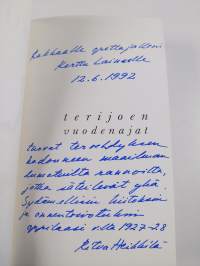 Rakkaalle opettajalleni
Kerttu Laineelle
12.6.1992
terijoen
vuodenajat
tuovat tervehdyksen
kadonneen maailman
lumotuilta rannoilta,
jotka säteilevät yhä.
Sydämellisin kiitoksin
ja onnentoivotuksin
oppilaasi v:lta 1927-28
Ritva Heikkilä